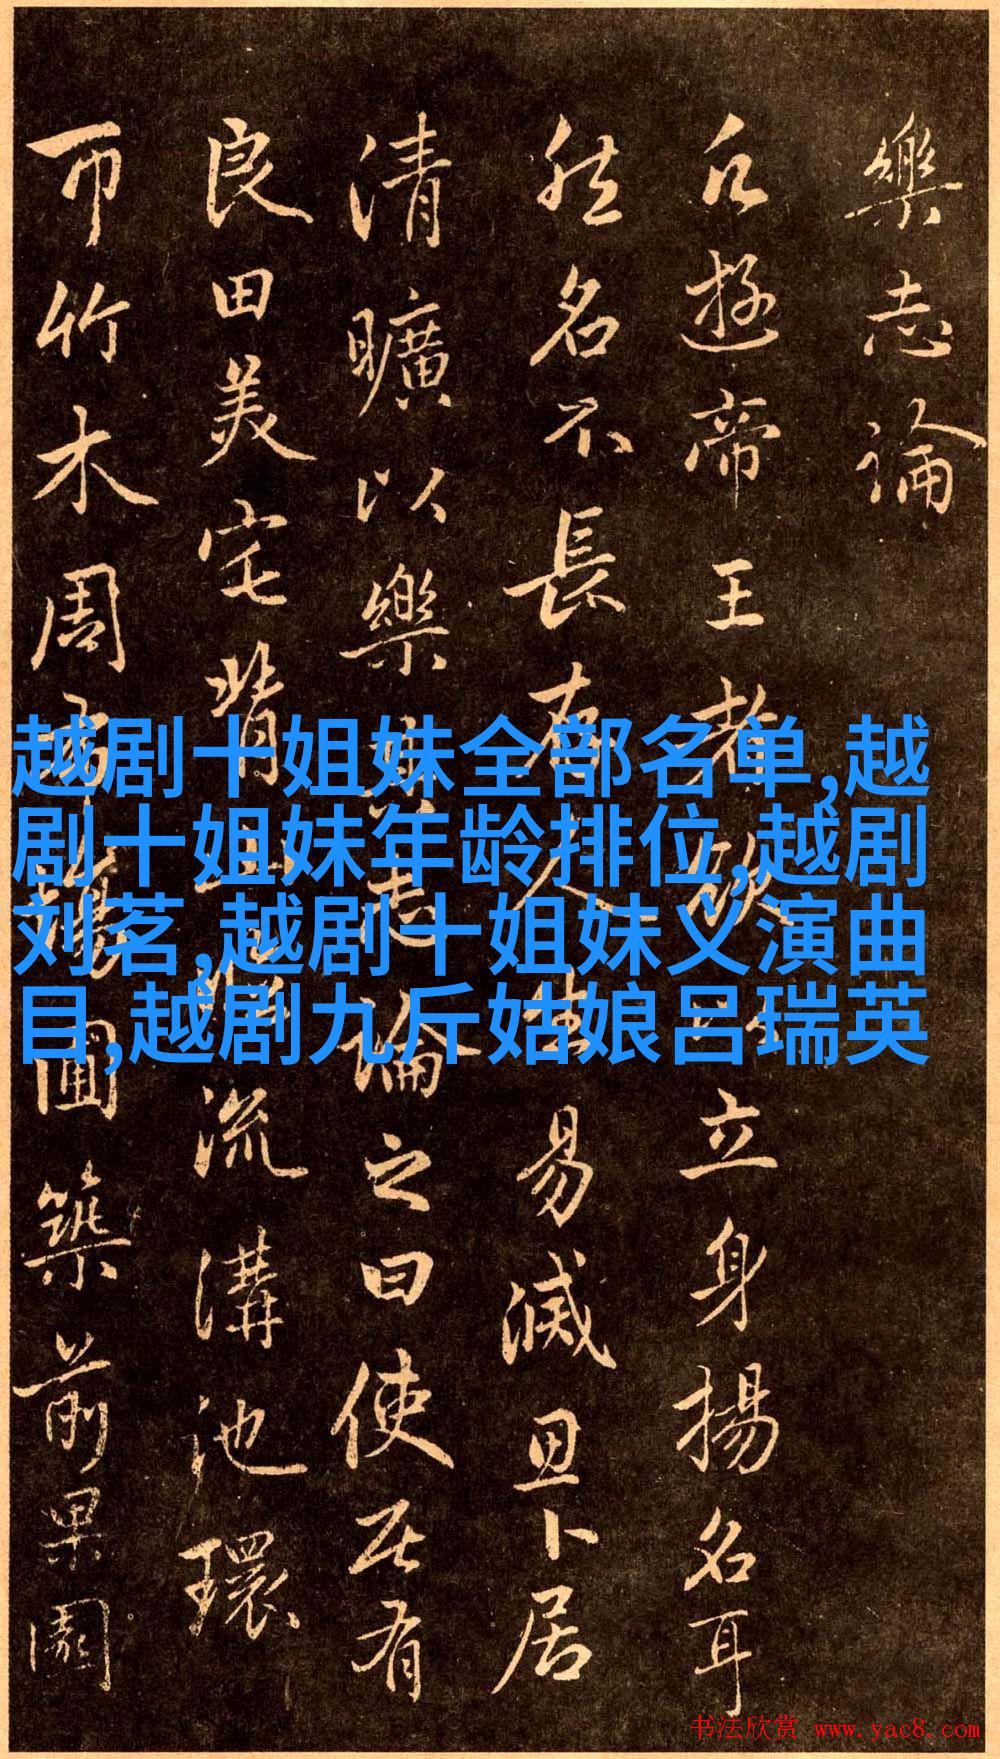 樂志論
凡遊帝王者欲以立身揚名耳
然名不長存人生易滅思卜居
清曠以樂其志論之曰使居有
良田美宅背山臨流溝池環
帀竹木周布場圃築前果園
越剧十姐妹全部名单,越
剧十姐妹年龄排位,越剧
刘茗,越剧十姐妹义演曲
目,越剧九斤姑娘吕瑞英
书法欣赏 www.yac8.com